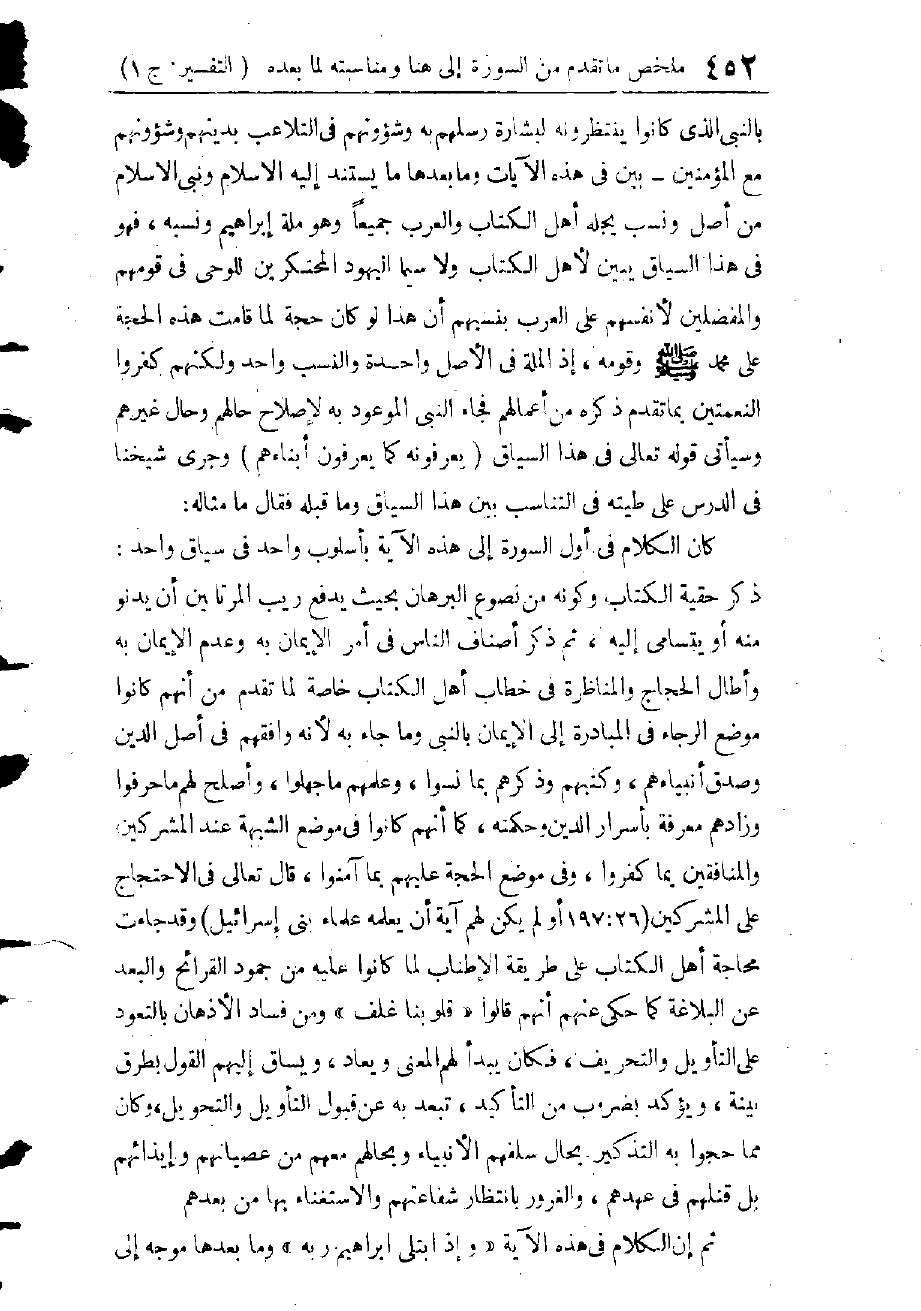 ٤٥٢ ملخص ما تقدم من السورة إلى هنا ومناسبته لما بعده ( التفسير · ج ١ )
بالنبى الذى كانوا ينتظرونه لبشارة رسلهم به وشؤونهم فى التلاعب بدينهم وشؤونهم
مع المؤمنين – بين فى هذه الآيات وما بعدها ما يستند إليه الاسلام ونبى الاسلام
من أصل ونسب يجله أهل الكتاب والعرب جميعاً وهو ملة إبراهيم ونسبه ، فهو
فى هذا السياق يبين لأهل الكتاب ولا سيما اليهود المحتكرين للوحى فى قومهم
والمفضلين لأنفسهم على العرب بنسبهم أن هذا لو كان حجة لما قامت هذه الحجة
على محمد ﷺ وقومه ، إذ الملة فى الأصل واحدة والنسب واحد ولكنهم كفروا
النعمتين بما تقدم ذكره من أعمالهم فجاء النبى الموعود به لإصلاح حالهم وحال غيرهم
وسيأتى قوله تعالى فى هذا السياق ( يعرفونه كما يعرفون أبناءهم ) وجرى شيخنا
فى الدرس على طيته فى التناسب بين هذا السياق وما قبله فقال ما مثاله :
كان الكلام فى أول السورة إلى هذه الآية بأسلوب واحد فى سياق واحد :
ذكر حقية الكتاب وكونه من نصوع البرهان بحيث يدفع ريب المرتابين أن يدنو
منه أو يتسامى إليه ، ثم ذكر أصناف الناس فى أمر الإيمان به وعدم الإيمان به
وأطال الحجاج والمناظرة فى خطاب أهل الكتاب خاصة لما تقدم من أنهم كانوا
موضع الرجاء فى المبادرة إلى الإيمان بالنبى وما جاء به لأنه وافقهم فى أصل الدين
وصدق أنبياءهم ، وكتبهم وذكرهم بما نسوا ، وعلمهم ما جهلوا ، وأصلح لهم ما حرفوا
وزادهم معرفة بأسرار الدين وحكمته ، كما أنهم كانوا فى موضع الشبهة عند المشركين
والمنافقين بما كفروا ، وفى موضع الحجة عليهم بما آمنوا ، قال تعالى فى الاحتجاج
على المشركين (١٩٧:٢٦ أو لم يكن لهم آية أن يعلمه علماء بنى إسرائيل) وقد جاءت
محاجة أهل الكتاب على طريقة الإطناب لما كانوا عليه من جمود القرائح والبعد
عن البلاغة كما حكى عنهم أنهم قالوا « قلوبنا غلف » ومن فساد الأذهان بالتعود
على التأويل والتحريف ، فكان يبدأ لهم المعنى ويعاد ، ويساق إليهم القول بطرق
بينة ، ويؤكد بضروب من التأكيد ، تبعد به عن قبول التأويل والتحويل ، وكان
مما حجوا به التذكير بحال سلفهم الأنبياء وبحالهم معهم من عصيانهم وإيذائهم
بل قتلهم فى عهدهم ، والغرور بانتظار شفاعتهم والاستغناء بها من بعدهم
ثم إن الكلام فى هذه الآية « وإذ ابتلى ابراهيم ربه » وما بعدها موجه إلى